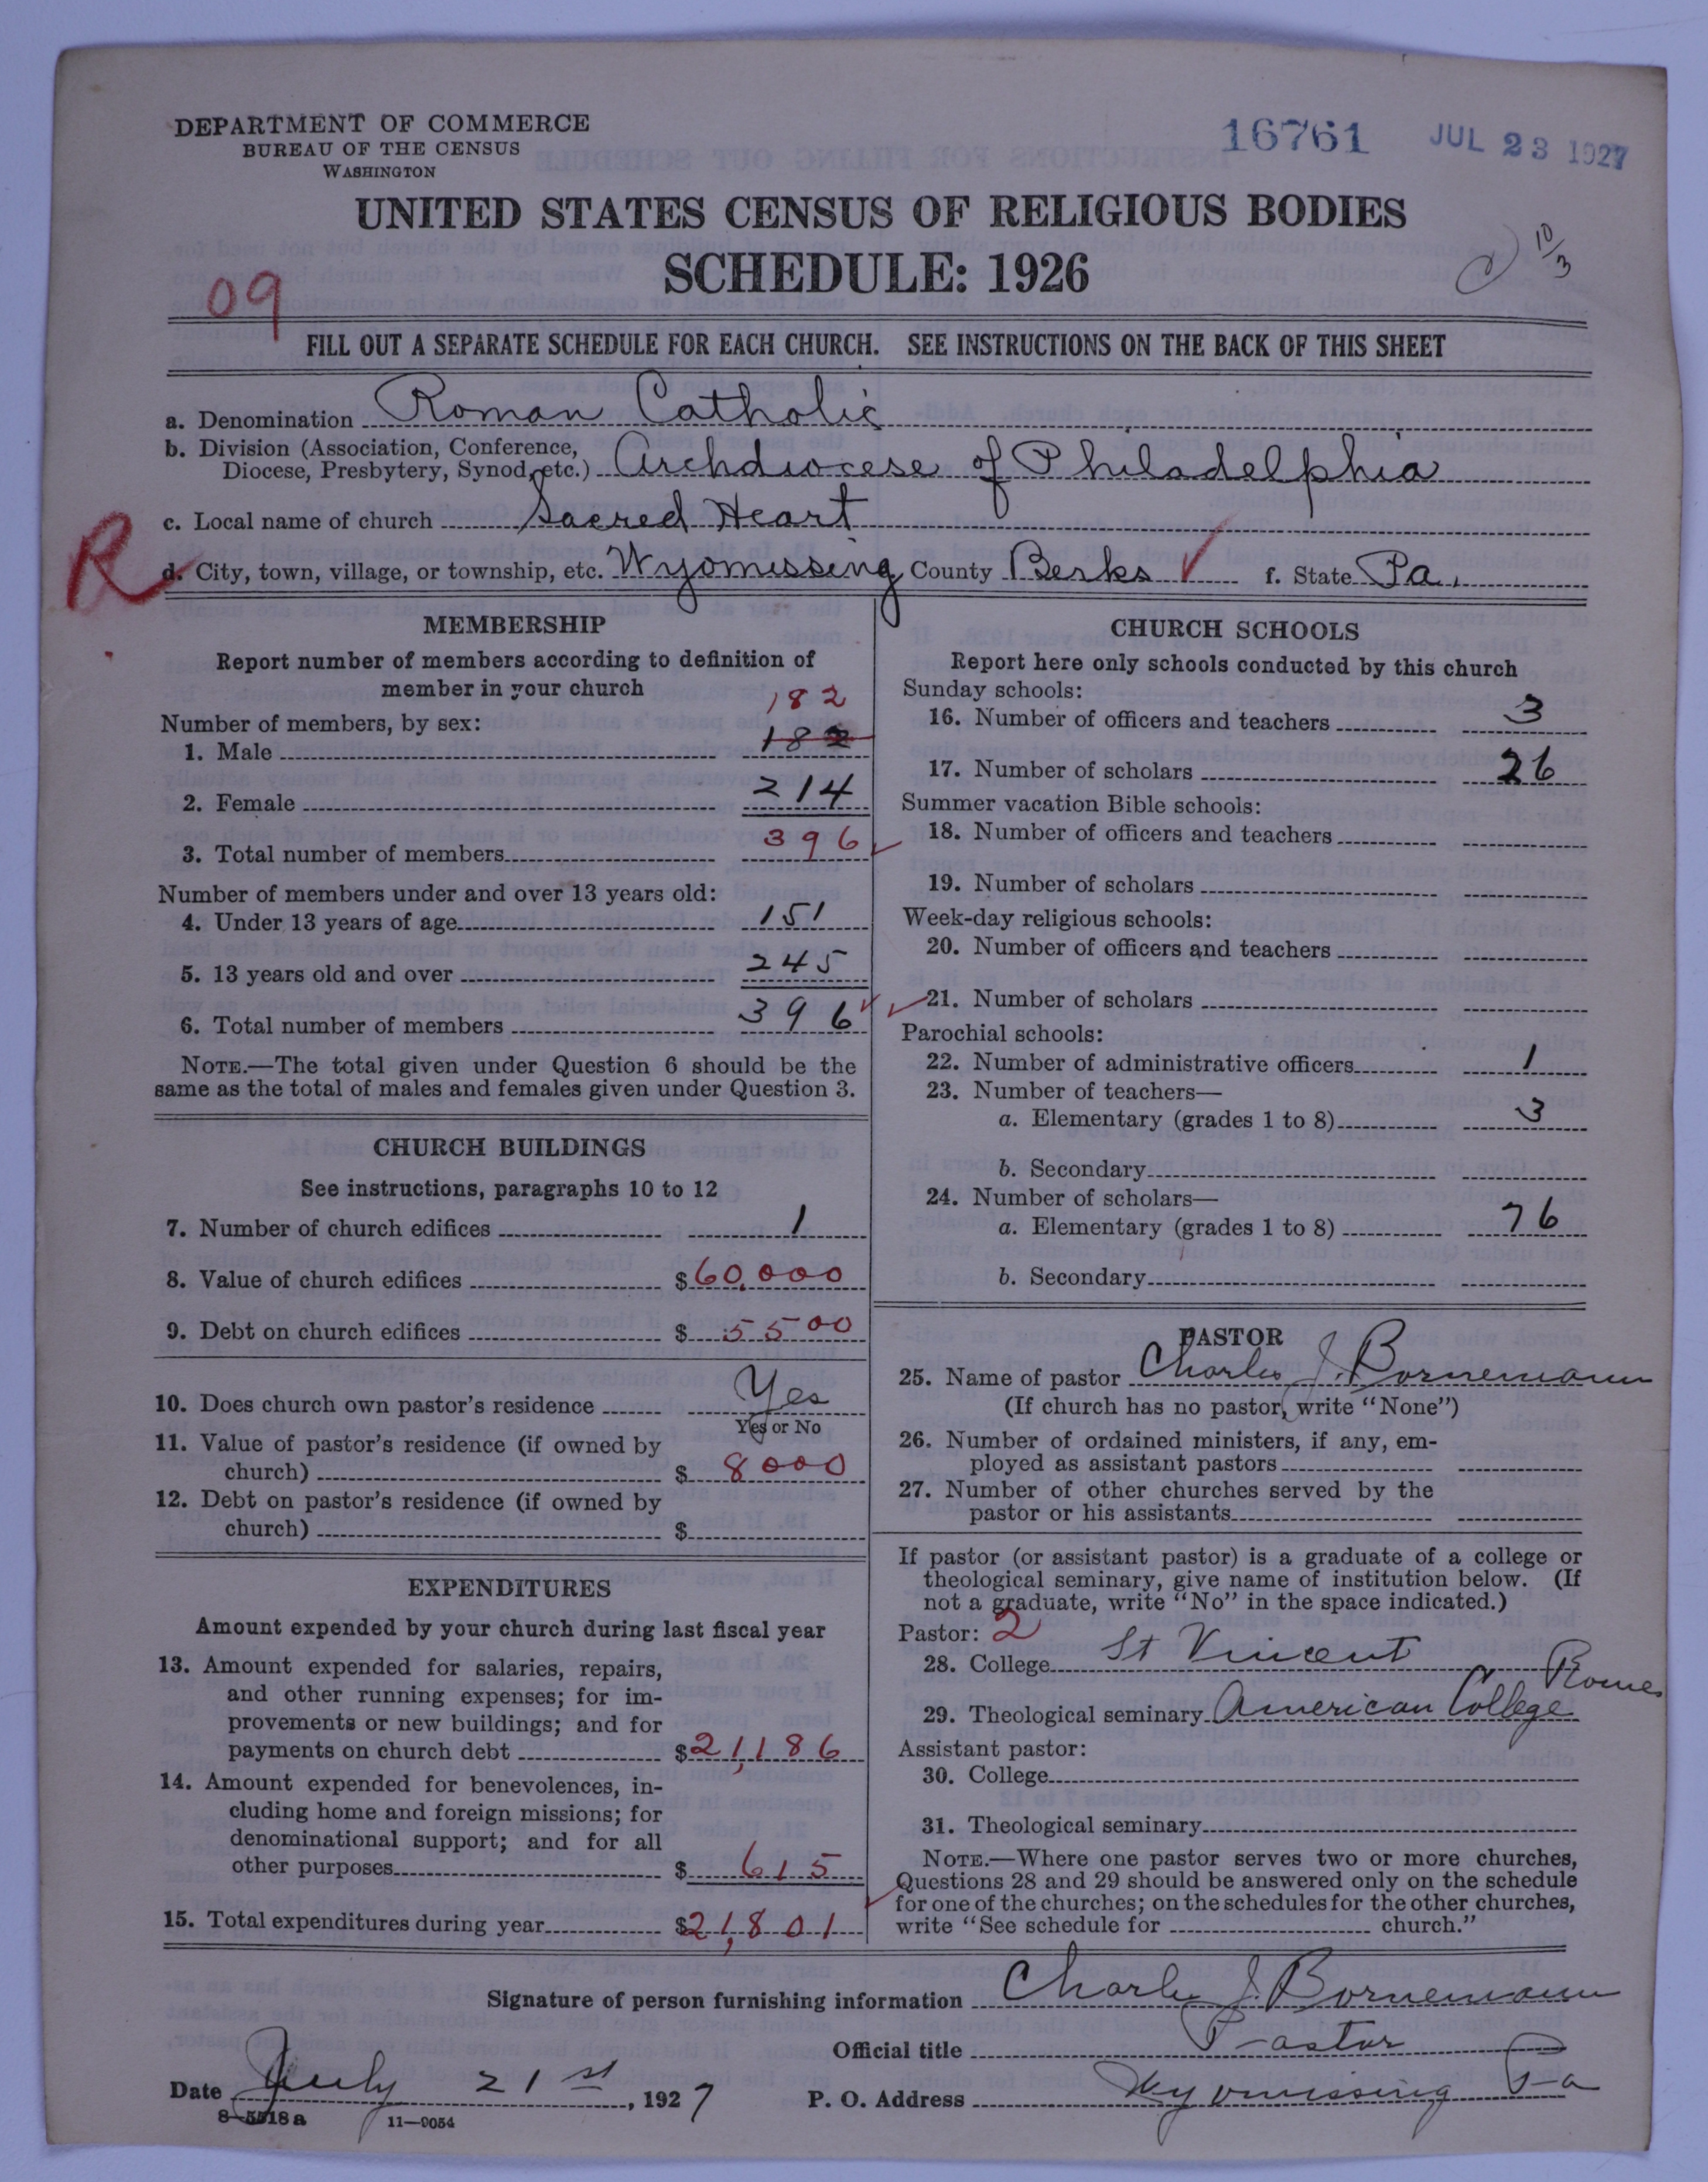 DEPARTMENT OF COMMERCE
BUREAU OF THE CENSUS
WASHINGTON
16761 JUL 23 1927
UNITED STATES CENSUS OF RELIGIOUS BODIES
SCHEDULE: 1926
10/3
09
FILL OUT A SEPARATE SCHEDULE FOR EACH CHURCH. SEE INSTRUCTIONS ON THE BACK OF THIS SHEET
a. Denomination Roman Catholic
b. Division (Association, Conference,
Diocese, Presbytery, Synod, etc.) Archdiocese of Philadelphia
c. Local name of church Sacred Heart
R
d. City, town, village, or township, etc. Wyomissing County Berks ✓ f. State Pa.
MEMBERSHIP
Report number of members according to definition of
member in your church
182
Number of members, by sex:
1. Male 182
2. Female 214
3. Total number of members 396 ✓
Number of members under and over 13 years old:
4. Under 13 years of age 151
5. 13 years old and over 245
6. Total number of members 396 ✓ ✓
NOTE.—The total given under Question 6 should be the
same as the total of males and females given under Question 3.
CHURCH BUILDINGS
See instructions, paragraphs 10 to 12
7. Number of church edifices 1
8. Value of church edifices $60,000
9. Debt on church edifices $5500
10. Does church own pastor's residence Yes
Yes or No
11. Value of pastor's residence (if owned by
church) $8000
12. Debt on pastor's residence (if owned by
church) $
EXPENDITURES
Amount expended by your church during last fiscal year
13. Amount expended for salaries, repairs,
and other running expenses; for im-
provements or new buildings; and for
payments on church debt $21,186
14. Amount expended for benevolences, in-
cluding home and foreign missions; for
denominational support; and for all
other purposes $615
15. Total expenditures during year $21,801 ✓
CHURCH SCHOOLS
Report here only schools conducted by this church
Sunday schools:
16. Number of officers and teachers 3
17. Number of scholars 26
Summer vacation Bible schools:
18. Number of officers and teachers
19. Number of scholars
Week-day religious schools:
20. Number of officers and teachers
21. Number of scholars
Parochial schools:
22. Number of administrative officers 1
23. Number of teachers—
a. Elementary (grades 1 to 8) 3
b. Secondary
24. Number of scholars—
a. Elementary (grades 1 to 8) 76
b. Secondary
PASTOR
25. Name of pastor Charles J. Bornemann
(If church has no pastor, write "None")
26. Number of ordained ministers, if any, em-
ployed as assistant pastors
27. Number of other churches served by the
pastor or his assistants
If pastor (or assistant pastor) is a graduate of a college or
theological seminary, give name of institution below. (If
not a graduate, write "No" in the space indicated.)
Pastor: 2
28. College St Vincent
29. Theological seminary American College Rome
Assistant pastor:
30. College
31. Theological seminary
NOTE.—Where one pastor serves two or more churches,
Questions 28 and 29 should be answered only on the schedule
for one of the churches; on the schedules for the other churches,
write "See schedule for church."
Signature of person furnishing information Charles J. Bornemann
Official title Pastor
Date July 21st, 1927 P. O. Address Wyomissing Pa
8—5518a 11—9054